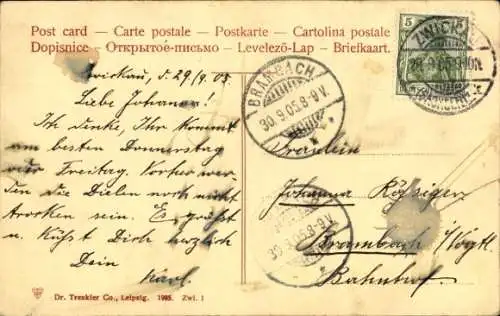 Post card — Carte postale — Postkarte — Cartolina postale
Dopisnice — Открытое письмо — Levelező-Lap — Briefkaart.
5 5
ZWICKAU
29.9.05
(SACHSEN)
BRAMBACH
30.9.05.8-9V.
Zwickau, d. 29/9. 05.
Liebe Johanna!
Ich denke, Ihr kommt
am besten Donnerstag
oder Freitag. Vorher wer-
den die Dielen noch nicht
trocken sein. Es grüßt
u. küßt Dich herzlich
Dein
Karl.
Fräulein
Johanna
Brambach i/Vogtl.
Bahnhof.
30.9.05.8-9V.
Dr. Trenkler Co., Leipzig. 1905. Zwi. 1